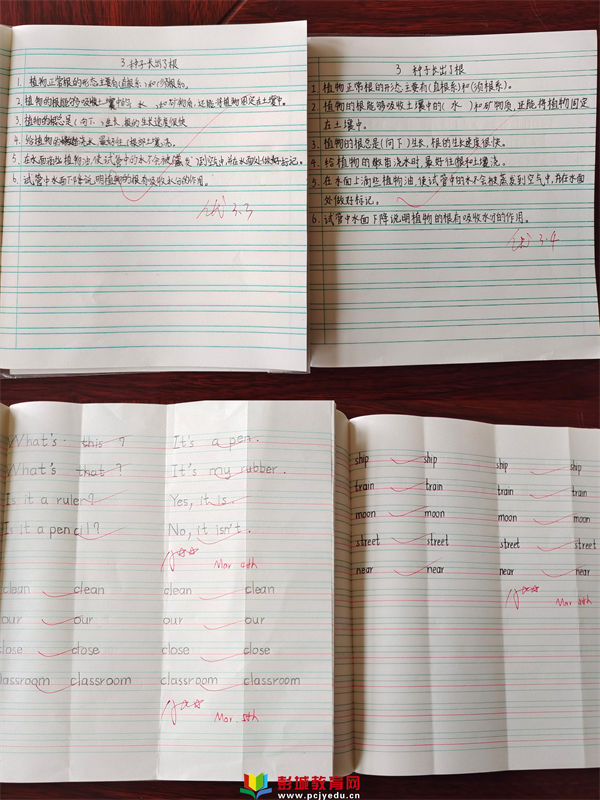 3 种子长出了根
1. 植物正常根的形态主要有(直根系)和(须根系)。
2. 植物的根能够吸收土壤中的(水)和矿物质,还能将植物固定在土壤中。
3. 植物的根总是(向下)生长,根的生长速度很快
4. 给植物的浇水,最好往根部土壤。
5. 在水面滴些植物油,使试管中的水不会被(蒸发)到空气中,并在水面处做好标记。
6. 试管中水面下降说明植物的根有吸收水分的作用。
优 3.3
3 种子长出了根
1. 植物正常根的形态主要有(直根系)和(须根系)。
2. 植物的根能够吸收土壤中的(水)和矿物质,还能将植物固定
在土壤中。
3. 植物的根总是(向下)生长,根的生长速度很快。
4. 给植物的幼苗浇水时,最好往根和土壤浇。
5. 在水面上滴些植物油,使试管中的水不会被蒸发到空气中,并在水面
处做好标记。
6. 试管中水面下降说明植物的根有吸收水分的作用。
优 3.4
What's this? It's a pen.
What's that? It's my rubber.
Is it a ruler? Yes, it is.
Is it a pencil? No, it isn't.
Mar. 4th
clean clean clean clean
our our our our
close close close close
classroom classroom classroom classroom
Mar. 5th
ship ship ship ship
train train train train
moon moon moon moon
street street street street
near near near near
Mar.
彭城教育网
www.pcjyedu.cn